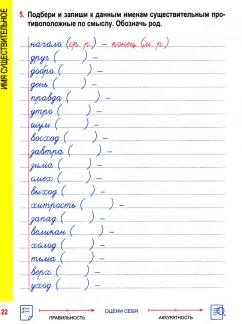 ИМЯ СУЩЕСТВИТЕЛЬНОЕ
5. Подбери и запиши к данным именам существительным про-
тивоположные по смыслу. Обозначь род.
начало (ср. р.) – конец (м. р.)
друг ( ) –
добро ( ) –
день ( ) –
правда ( ) –
утро ( ) –
шум ( ) –
восход ( ) –
завтра ( ) –
зима ( ) –
смех ( ) –
выход ( ) –
хитрость ( ) –
запад ( ) –
великан ( ) –
холод ( ) –
тьма ( ) –
верх ( ) –
уход ( ) –
22
ПРАВИЛЬНОСТЬ
ОЦЕНИ СЕБЯ
АККУРАТНОСТЬ